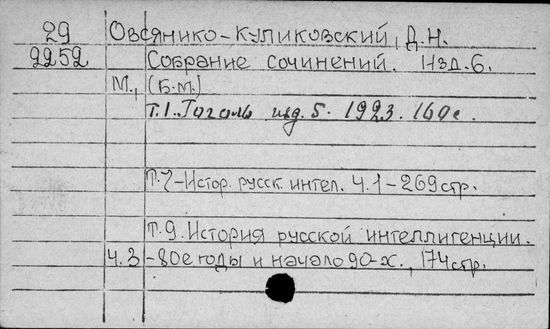 29 Овсянико-Куликовский, Д.Н.
9252 Собрание сочинений. Изд.6.
М., (Б.М.)
Т.1. Гоголь изд. 5. 1923. 160 с.
Т.7-Истор. русск. интел. Ч.1-269стр.
Т.9. История русской интеллигенции.
Ч.3 -80е годы и начало 90-х., 174стр.